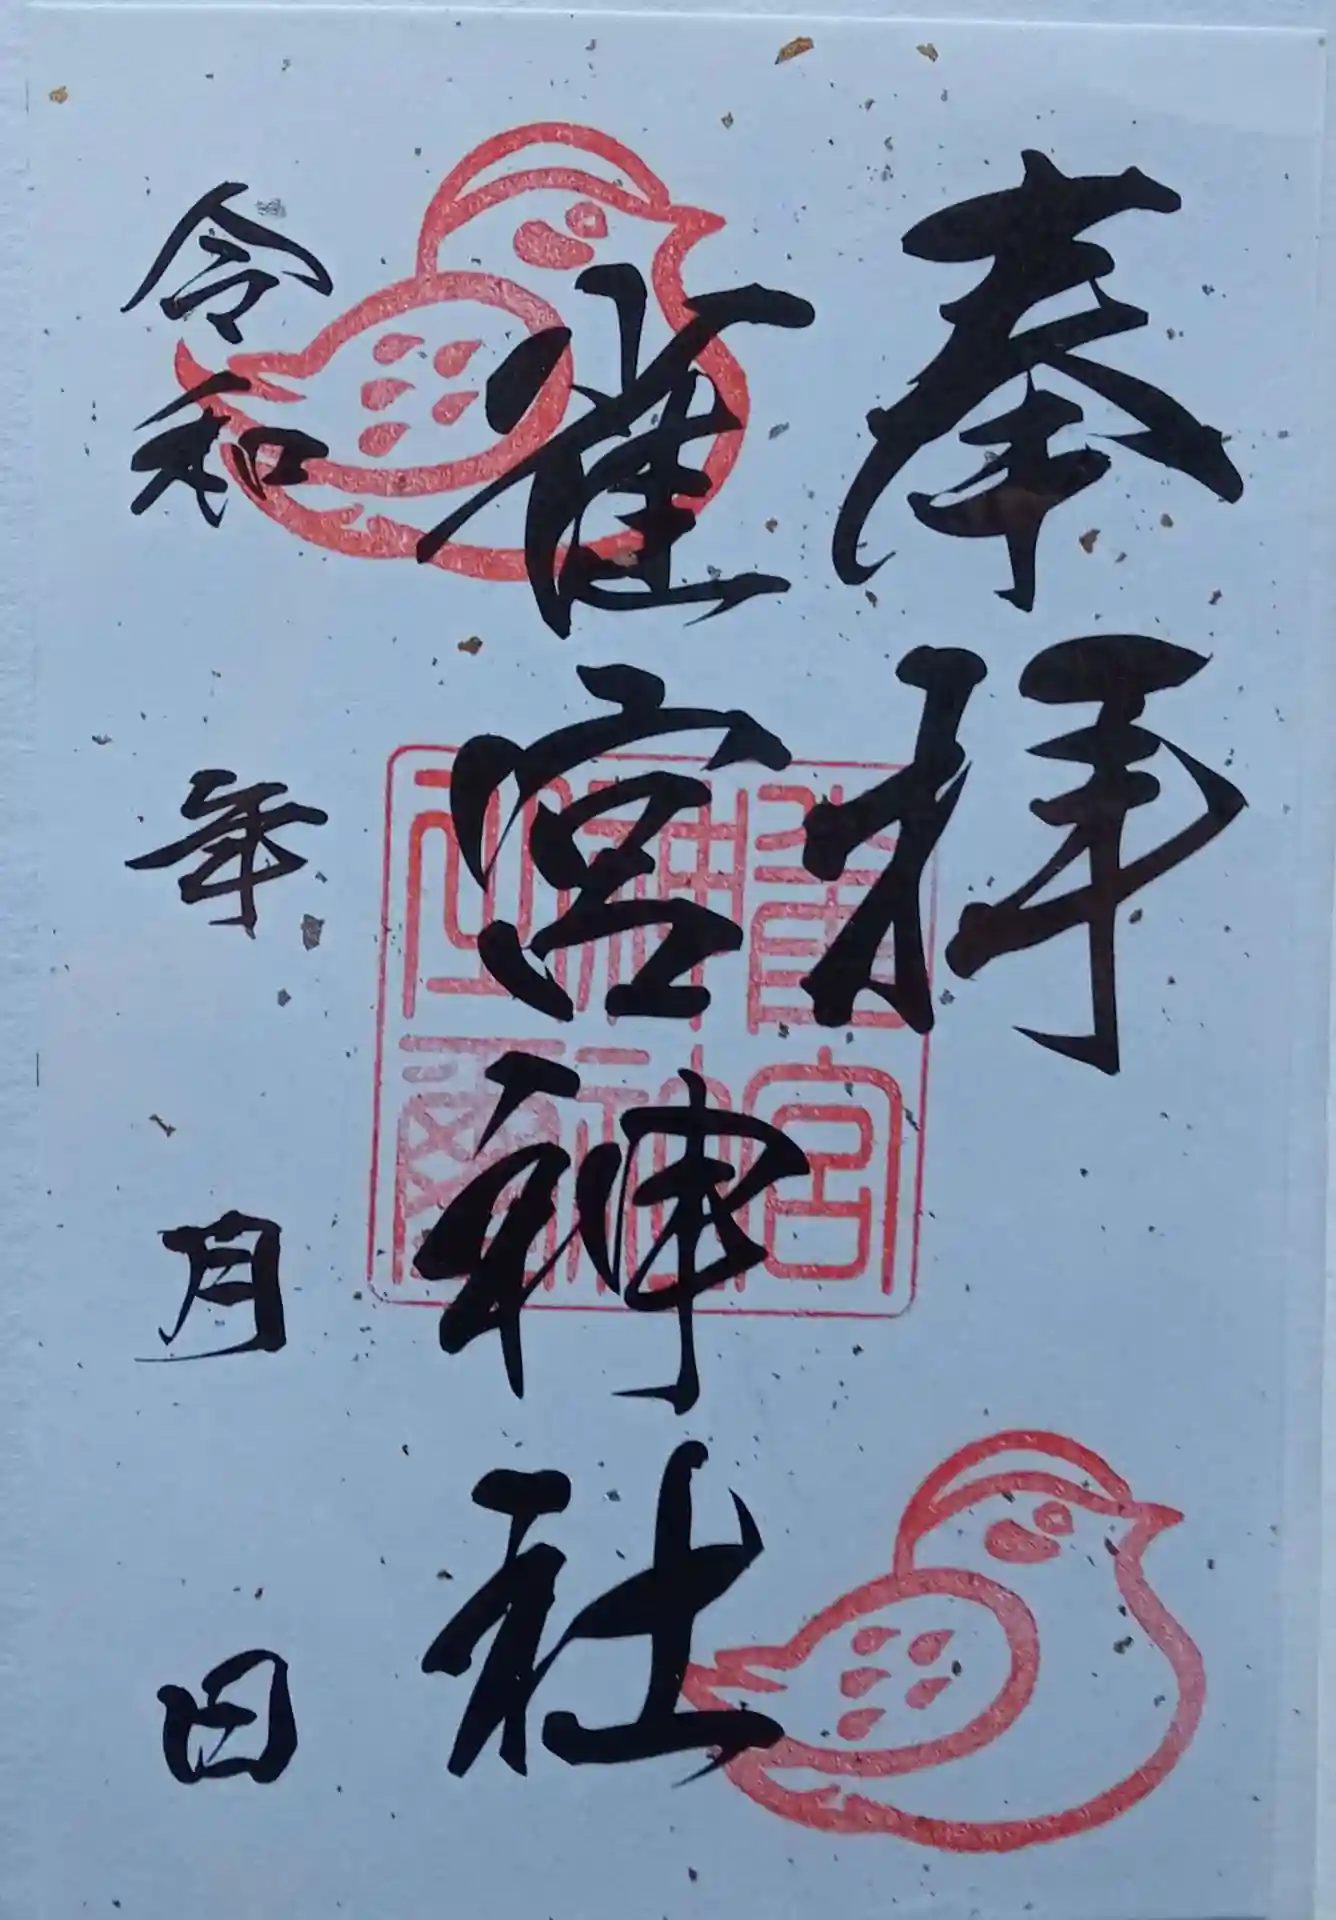 奉拝
雀宮神社
令和 年 月 日
雀宮
神社
神璽